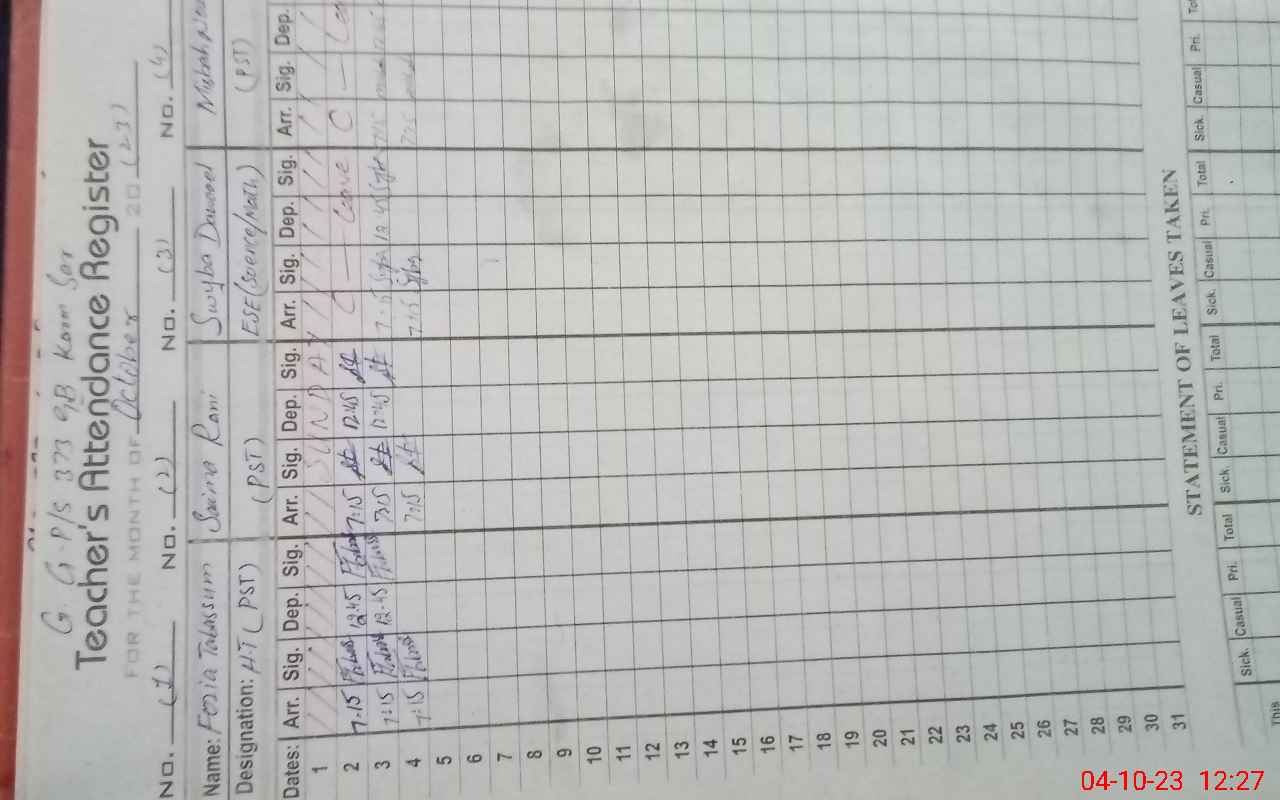 G. G. P/S 373 GB Karm Sar
Teacher's Attendance Register
FOR THE MONTH OF October 20 (23)
No. (1) No. (2) No. (3) No. (4)
Name: Fozia Tabassum Saima Rani
Designation: HT (PST) (PST) ESE (Science/Math) (PST)
Dates: Arr. Sig. Dep. Sig. Arr. Sig. Dep. Sig. Arr. Sig. Dep. Sig. Arr. Sig. Dep.
1 SUNDAY
2 7:15 12:45 7:15 12:45 C — Leave C —
3 7:15 12:45 7:15 12:45 7:15 12:45 7:15
4 7:15 7:15 7:15 7:15
5
6
7
8
9
10
11
12
13
14
15
16
17
18
19
20
21
22
23
24
25
26
27
28
29
30
31
STATEMENT OF LEAVES TAKEN
Sick. Casual Pri. Total Sick. Casual Pri. Total Sick. Casual Pri. Total Sick. Casual Pri.
This
04-10-23 12:27